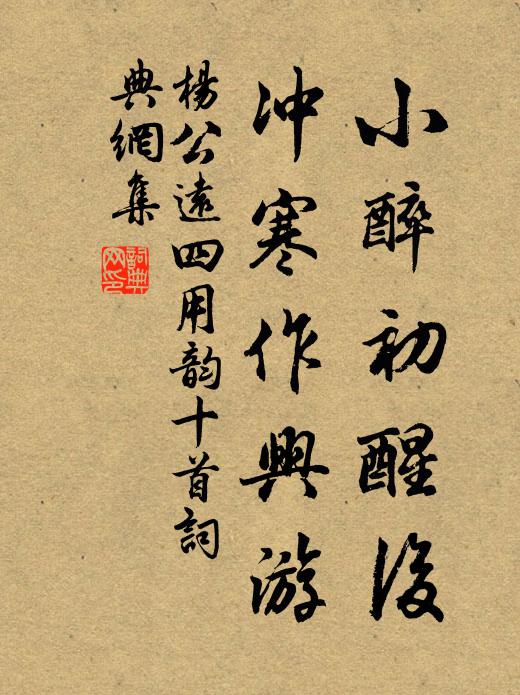 小醉初醒後
冲寒作興游
楊公遠四用韵十首詞
典網集
詞典
网印